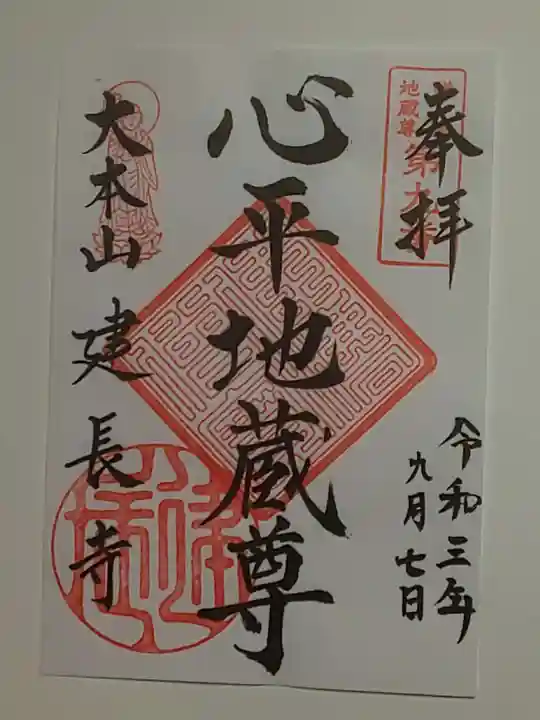 奉拝
地蔵尊
心平地蔵尊
令和三年
九月七日
大本山建長寺